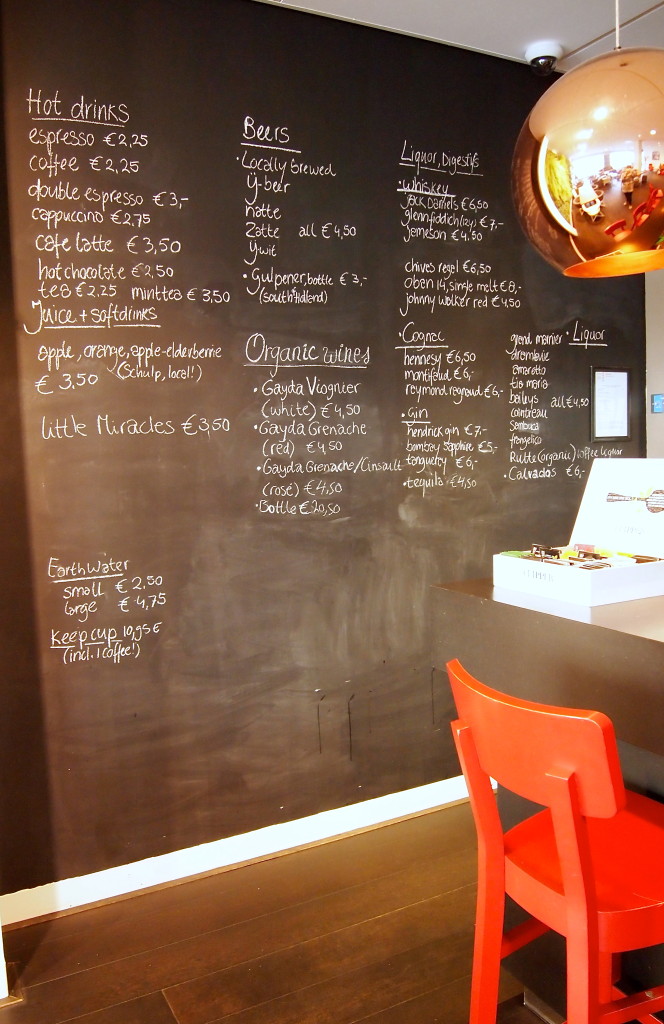 Hot drinks
espresso € 2,25
coffee € 2,25
double espresso € 3,-
cappuccino € 2,75
cafe latte € 3,50
hot chocolate € 2,50
tea € 2,25 mint tea € 3,50
Juice + softdrinks
apple, orange, apple-elderberrie
(Schulp, local!)
€ 3,50
little Miracles € 3,50
Earth Water
small € 2,50
large € 4,75
Keep cup 10,95 €
(incl. 1 coffee!)
Beers
• Locally brewed
ÿ-beer
natte
Zatte all € 4,50
ÿwit
• Gulpener, bottle € 3,-
Organic wines
• Gayda Viognier
(white) € 4,50
• Gayda Grenache
(red) € 4,50
• Gayda Grenache/Cinsault
(rosé) € 4,50
• Bottle € 20,50
Liquor, Digestifs
• Whiskey
jack Daniels € 6,50
glennfiddich (12y) € 7,-
jameson € 4,50
chives regel € 6,50
oban 14, single melt € 8,-
johnny walker red € 4,50
• Cognac
hennesy € 6,50
montifaud € 6,-
reymond ragnaud € 6,-
• gin
hendrick gin € 7,-
bombay sapphire € 5,-
tanguery € 6,-
• tequila € 4,50
• Liquor
grand marnier
drambuie
amaretto
tia maria
baileys all € 4,50
cointreau
Sambuca
frangelico
Rutte (organic) coffee liquor
• Calvados € 6,-